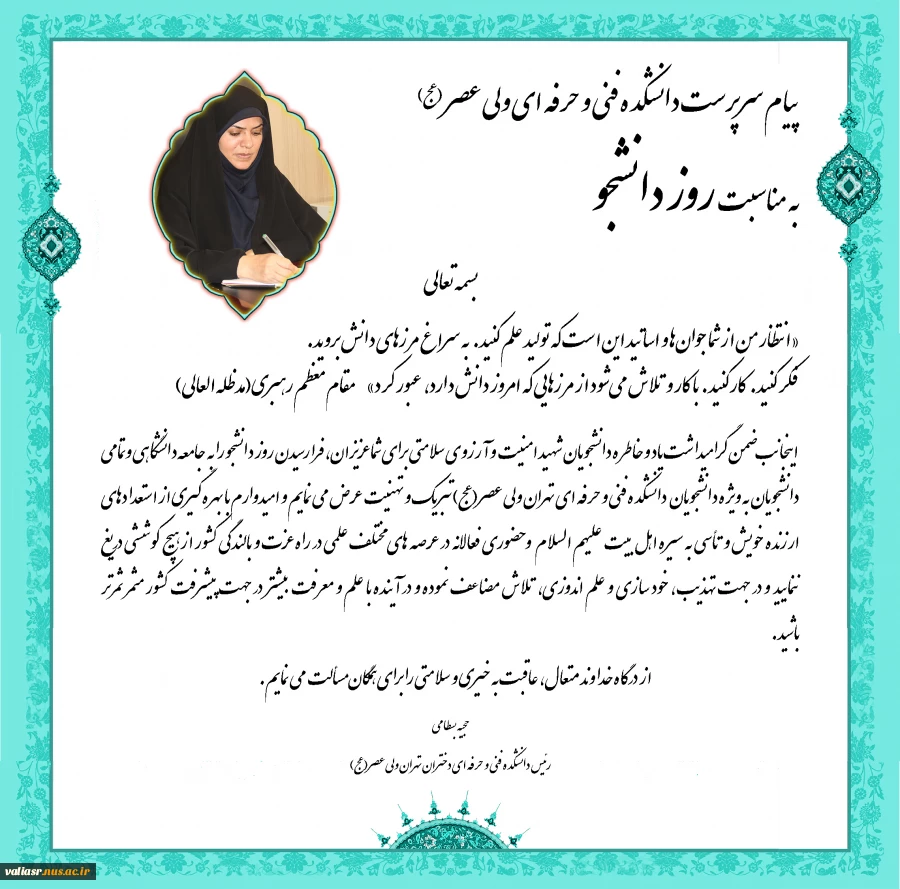 پیام سرپرست دانشکده فنی و حرفه ای ولی عصر (عج)
به مناسبت روز دانشجو
بسمه تعالی
«انتظار من از شما جوان ها و اساتید این است که تولید علم کنید. به سراغ مرزهای دانش بروید.
فکر کنید. کار کنید. با کار و تلاش می شود از مرزهایی که امروز دانش دارد، عبور کرد» مقام معظم رهبری (مدظله العالی)
اینجانب ضمن گرامیداشت یاد و خاطره دانشجویان شهید امنیت و آرزوی سلامتی برای شما عزیزان، فرا رسیدن روز دانشجو را به جامعه دانشگاهی و تمامی
دانشجویان به ویژه دانشجویان دانشکده فنی و حرفه ای تهران ولی عصر (عج) تبریک و تهنیت عرض می نمایم و امیدوارم با بهره گیری از استعدادهای
ارزنده خویش و تأسی به سیره اهل بیت علیهم السلام و حضوری فعالانه در عرصه های مختلف علمی در راه عزت و بالندگی کشور از هیچ کوششی دریغ
ننمایید و در جهت تهذیب، خودسازی و علم اندوزی، تلاش مضاعف نموده و در آینده با علم و معرفت بیشتر در جهت پیشرفت کشور مثمر ثمرتر
باشید.
از درگاه خداوند متعال، عاقبت به خیری و سلامتی را برای همگان مسألت می نمایم.
بسطامی
رئیس دانشکده فنی و حرفه ای دختران تهران ولی عصر (عج)
valiasr.nus.ac.ir